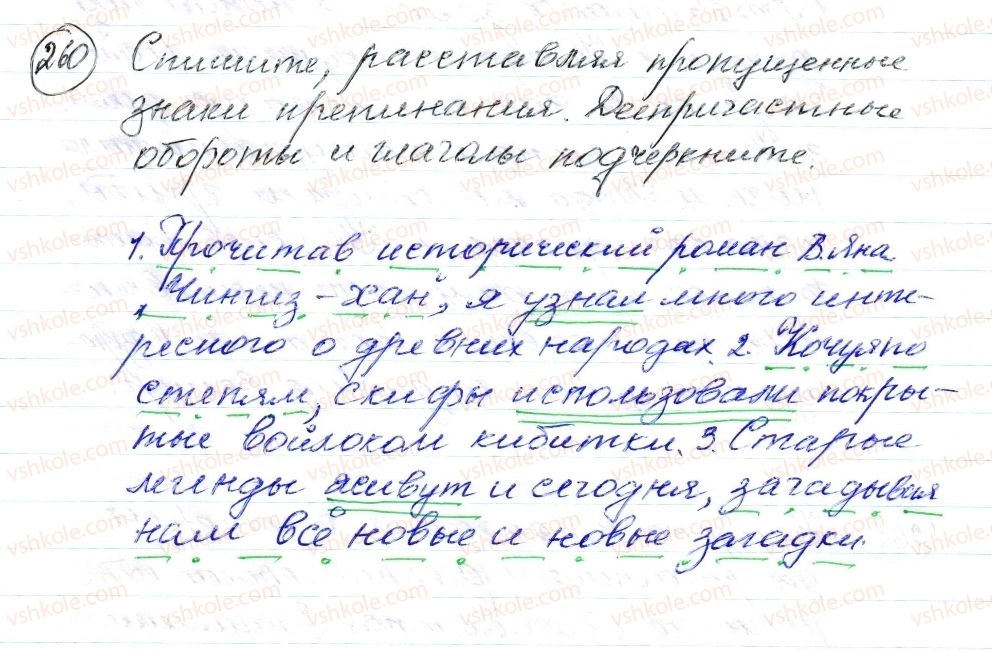 260 Спишите, расставляя пропущенные
знаки препинания. Деепричастные
обороты и глаголы подчеркните.
1. Прочитав исторический роман В. Яна
„Чингиз-хан", я узнал много инте-
ресного о древних народах. 2. Кочуя по
степям, скифы использовали покры-
тые войлоком кибитки. 3. Старые
легенды живут и сегодня, загадывая
нам всё новые и новые загадки.